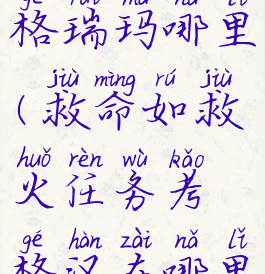 gé ruì mǎ nǎ lǐ
格瑞玛哪里
jiù mìng rú jiù
(救命如救
huǒ rèn wù kǎo
火任务考
gé hàn zài nǎ lǐ
格汉在哪里